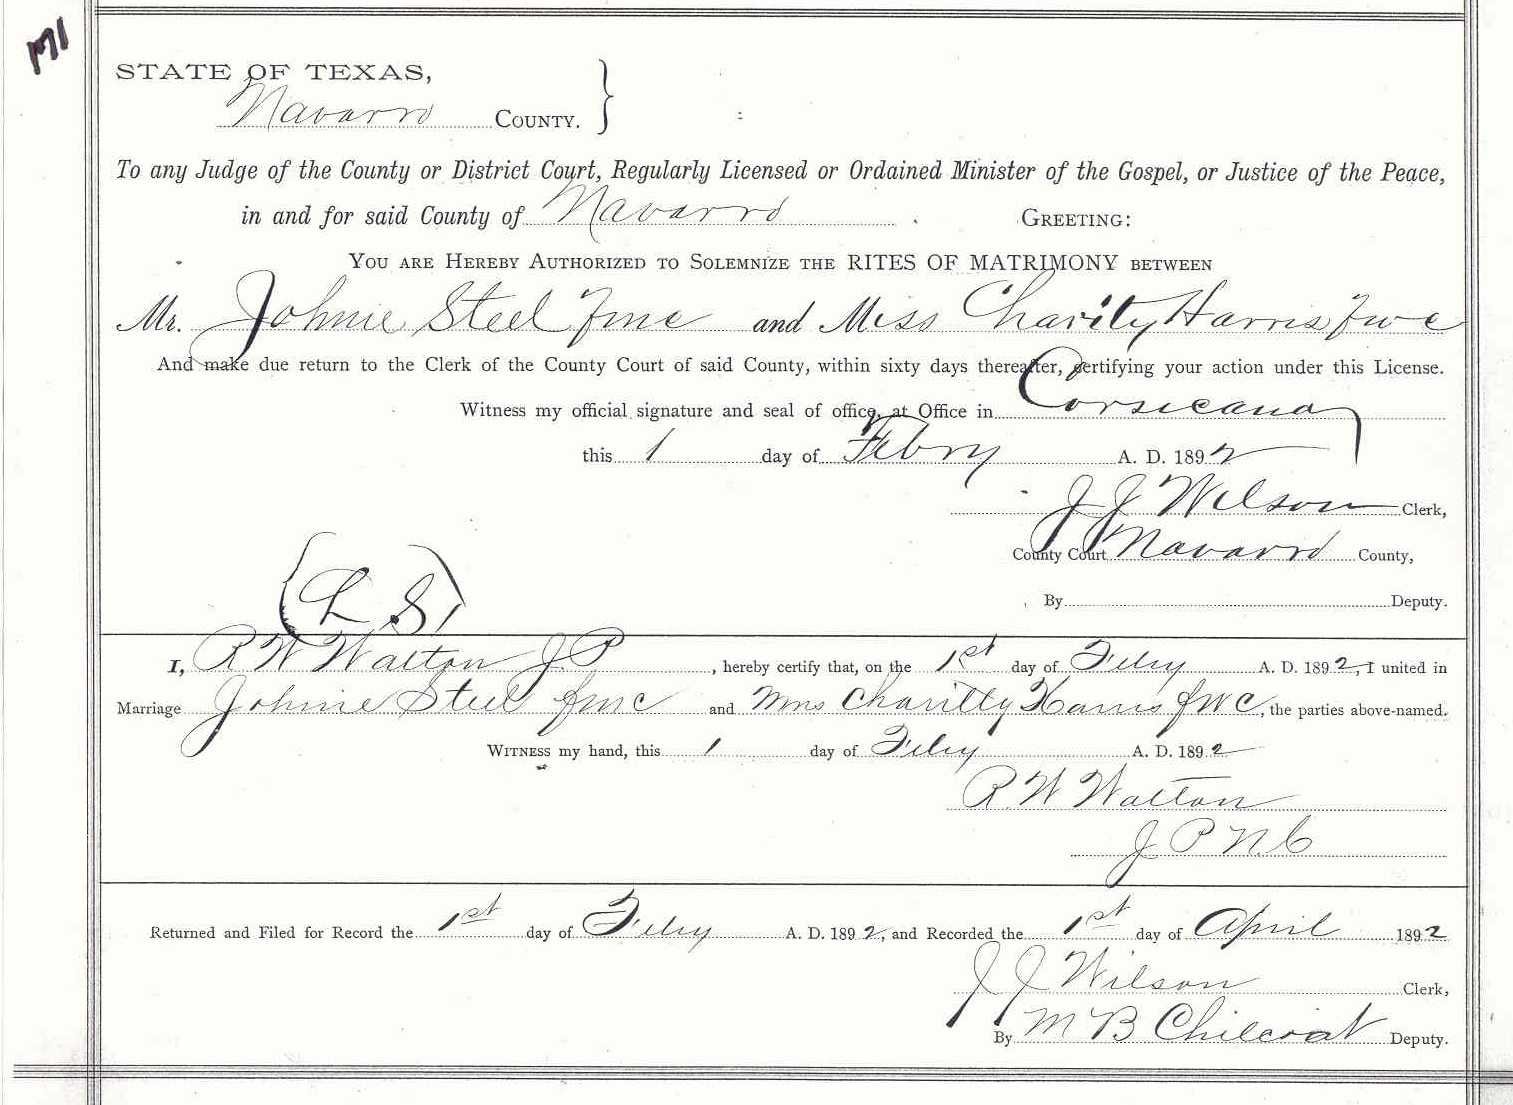 STATE OF TEXAS,
Navarro COUNTY.
To any Judge of the County or District Court, Regularly Licensed or Ordained Minister of the Gospel, or Justice of the Peace,
in and for said County of Navarro . GREETING:
YOU ARE HEREBY AUTHORIZED TO SOLEMNIZE THE RITES OF MATRIMONY BETWEEN
Mr. Johnie Steel fmc and Miss Charity Harris fwc
And make due return to the Clerk of the County Court of said County, within sixty days thereafter, certifying your action under this License.
Witness my official signature and seal of office, at Office in Corsicana
this 1 day of Febry A. D. 1892
J J Wilson Clerk,
County Court Navarro County,
By Deputy.
(L. S)
I, R W Walton J P , hereby certify that, on the 1st day of Feby A. D. 1892, I united in
Marriage Johnie Steel fmc and Charitty Harris fwc, the parties above-named.
WITNESS my hand, this 1 day of Feby A. D. 1892
R. W Walton
J P N. C
Returned and Filed for Record the 1st day of Feby A. D. 1892, and Recorded the 1st day of April 1892
J J Wilson Clerk,
By M B Chilcoat Deputy.